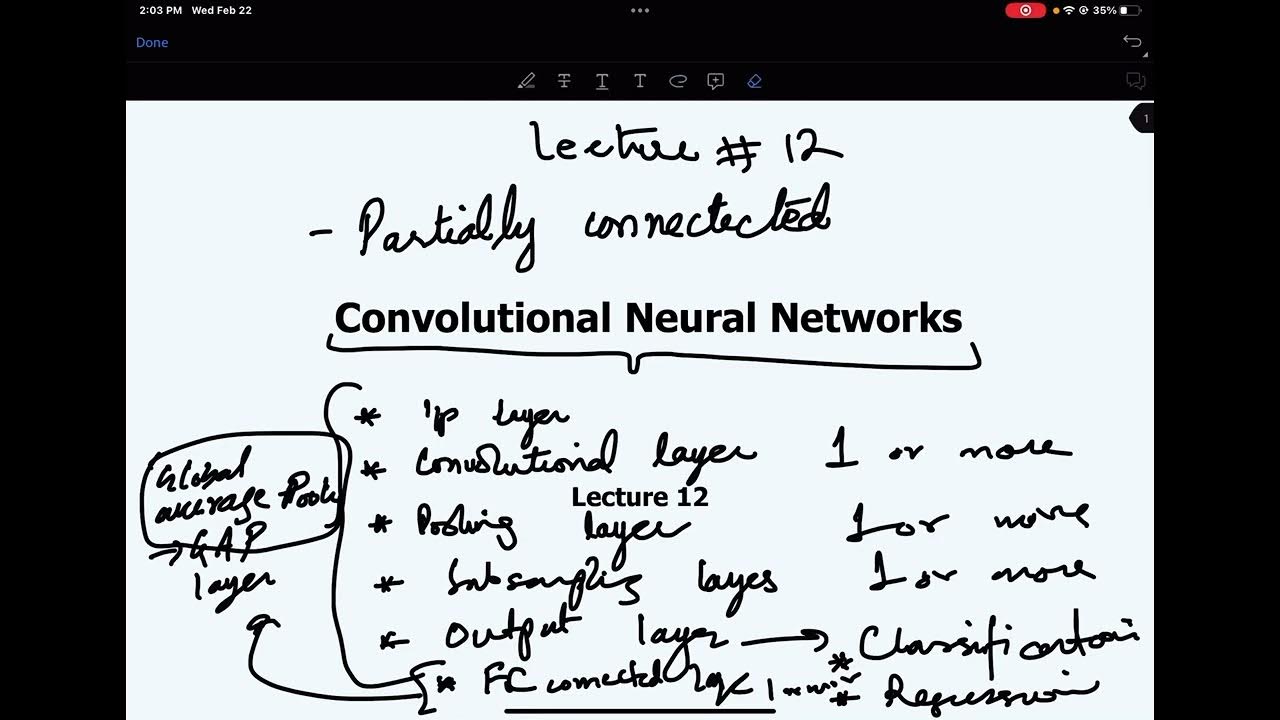 2:03 PM Wed Feb 22
35%
Done
T T T
1
Lecture # 12
- Partially connectected
Convolutional Neural Networks
* I/p layer
* Convolutional layer 1 or more
Lecture 12
* Pooling layer 1 or more
* Subsampling layes 1 or more
* Output layer → Classification
* FC connected 1 or * Regression
Global
average Pooli
→ GAP
layer